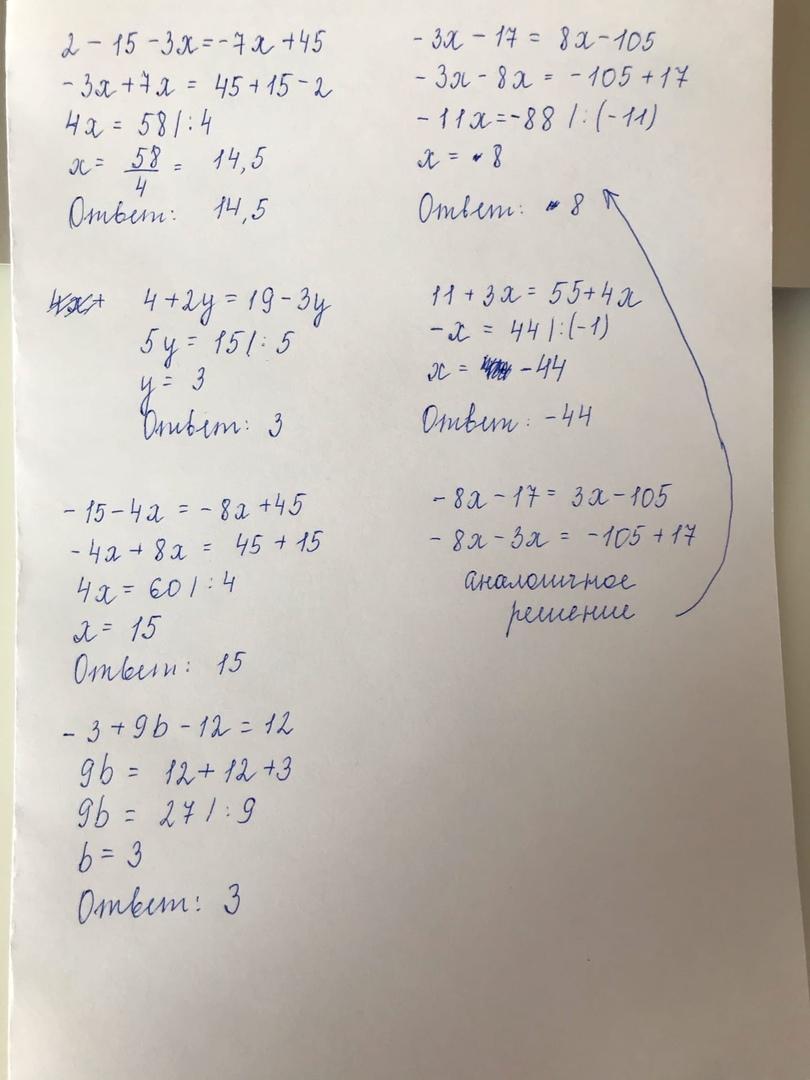 2 - 15 - 3x = -7x + 45
-3x + 7x = 45 + 15 - 2
4x = 58 / : 4
x = 58/4 = 14,5
Ответ: 14,5
4 + 2y = 19 - 3y
5y = 15 / : 5
y = 3
Ответ: 3
-15 - 4x = -8x + 45
-4x + 8x = 45 + 15
4x = 60 / : 4
x = 15
Ответ: 15
-3 + 9b - 12 = 12
9b = 12 + 12 + 3
9b = 27 / : 9
b = 3
Ответ: 3
-3x - 17 = 8x - 105
-3x - 8x = -105 + 17
-11x = -88 / : (-11)
x = 8
Ответ: 8
11 + 3x = 55 + 4x
-x = 44 / : (-1)
x = -44
Ответ: -44
-8x - 17 = 3x - 105
-8x - 3x = -105 + 17
аналогичное
решение